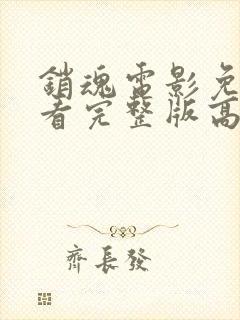 銷魂電影免
看完整版高
齊長發